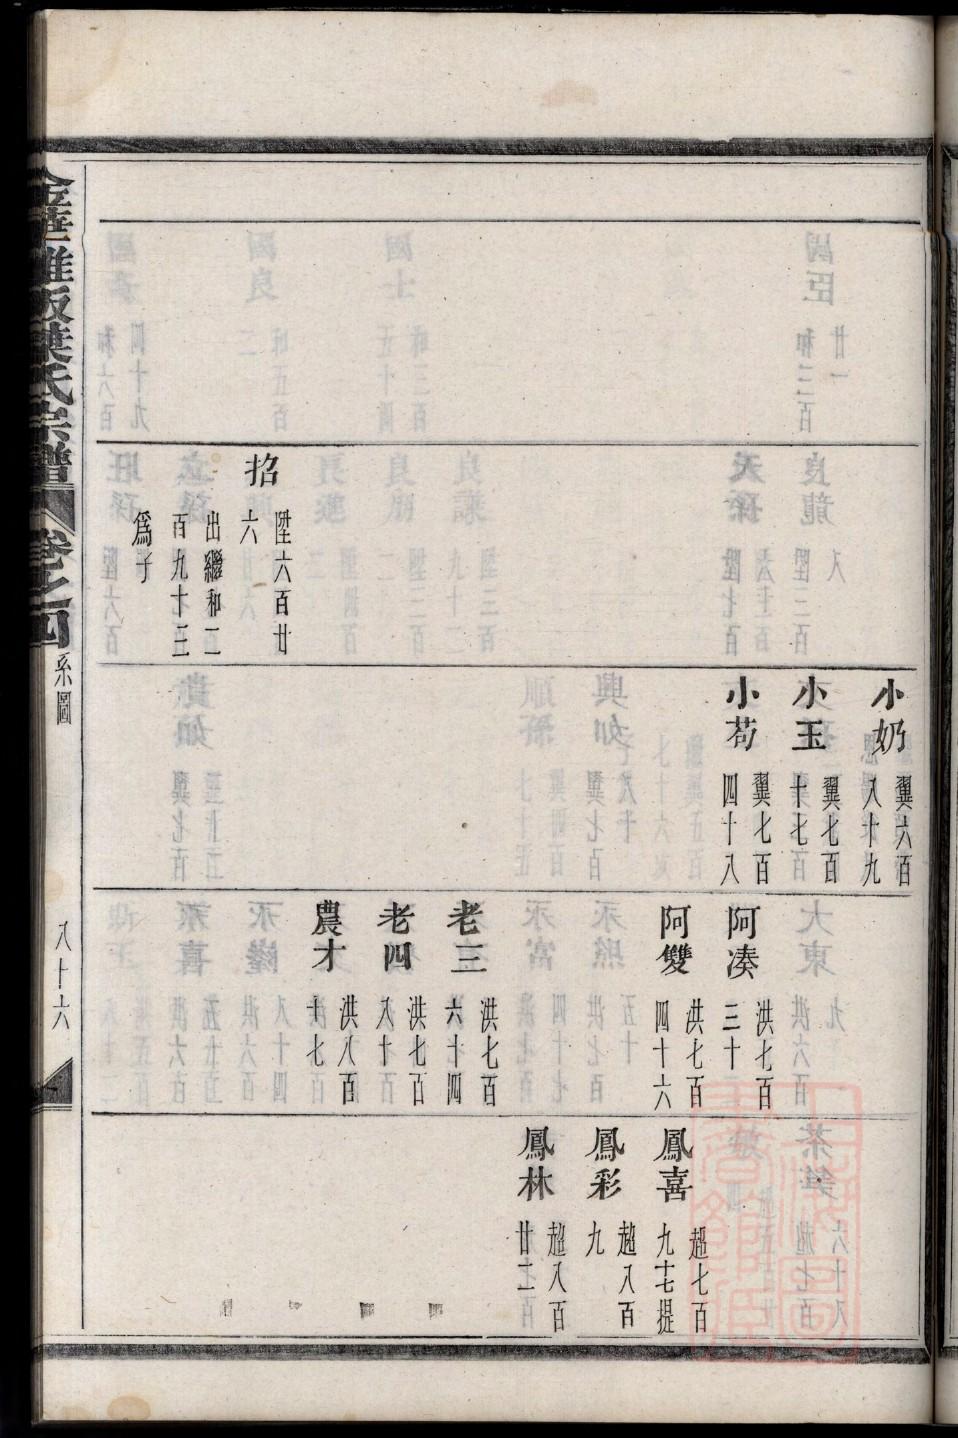 招
陞六百廿
六
出繼和二
百九十三
為子
小奶
翼六百
八十九
小玉
翼七百
十七
小苟
翼七百
四十八
阿湊
洪七百
三十
阿雙
洪七百
四十六
老三
洪七百
六十四
老四
洪七百
八十
農才
洪八百
十七
鳳喜
超七百
九十七提
鳳彩
超八百
九
鳳林
超八百
廿二
葉氏宗譜
卷之四
系圖
八十六